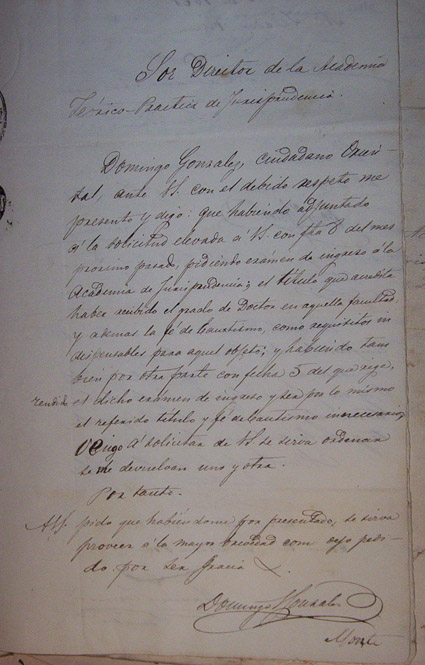 Sor Director de la Academia
Teórico-Practica de Jurispridencia.
Domingo Gonzalez, ciudadano Orien-
tal, ante VS. con el debido respeto me
presento y digo: que habiendo adjuntado
á la solicitud elevada á VS. con fha 8 del mes
próximo pasado, pidiendo examen de ingreso á la
Academia de Jurispridencia; el título que acredita
haber recibido el grado de Doctor en aquella facultad
y ademas la fé de bautismo, como requisitos in
dispensables para aquel objeto; y habiendo tam
bien por otra parte con fecha 5 del que rige,
rendido el dicho examen de ingreso y ser por lo mismo
el referido título y fé de bautismo innecesarios,
vengo á solicitar de VS. se sirva ordenar
se me devuelvan uno y otra.
Por tanto.
A VS. pido que habiéndome por presentado, se sirva
proveer á la mayor brevedad como dejo pedi-
do por ser gracia
Domingo Gonzalez